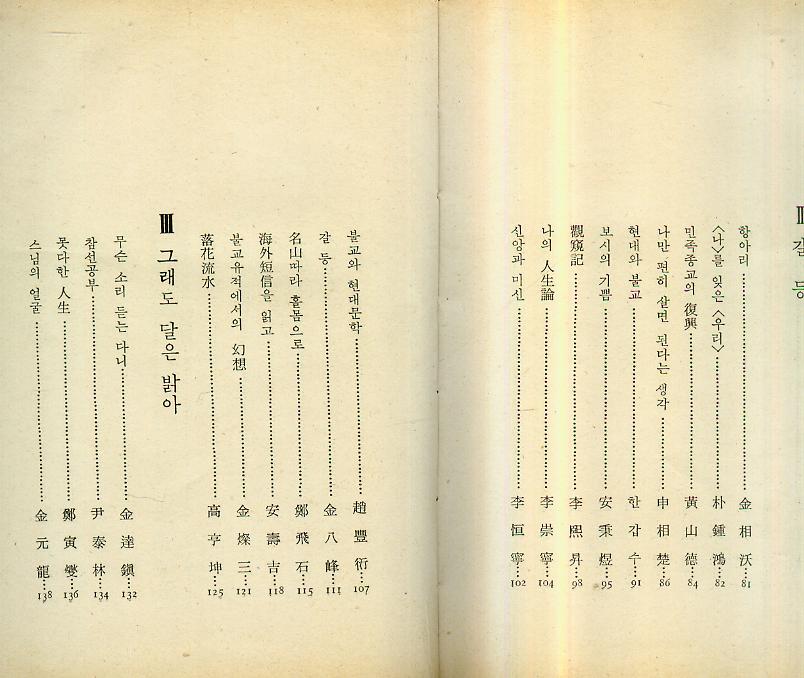 Ⅱ 갈 등
항아리 金相沃 81
〈나〉를 잊은 〈우리〉 朴鍾鴻 82
민족종교의 復興 黃山德 84
나만 편히 살면 된다는 생각 申相楚 86
현대와 불교 한갑수 91
보시의 기쁨 安秉煜 95
觀窺記 李熙昇 98
나의 人生論 李崇寧 104
신앙과 미신 李恒寧 102
불교와 현대문학 趙豐衍 107
갈 등 金八峰 111
名山따라 홀몸으로 鄭飛石 115
海外短信을 읽고 安壽吉 118
불교유적에서의 幻想 金燦三 121
落花流水 高亨坤 125
Ⅲ 그래도 달은 밝아
무슨 소리 듣는 다니 金達鎭 132
참선공부 尹泰林 134
못다한 人生 鄭寅燮 136
스님의 얼굴 金元龍 138